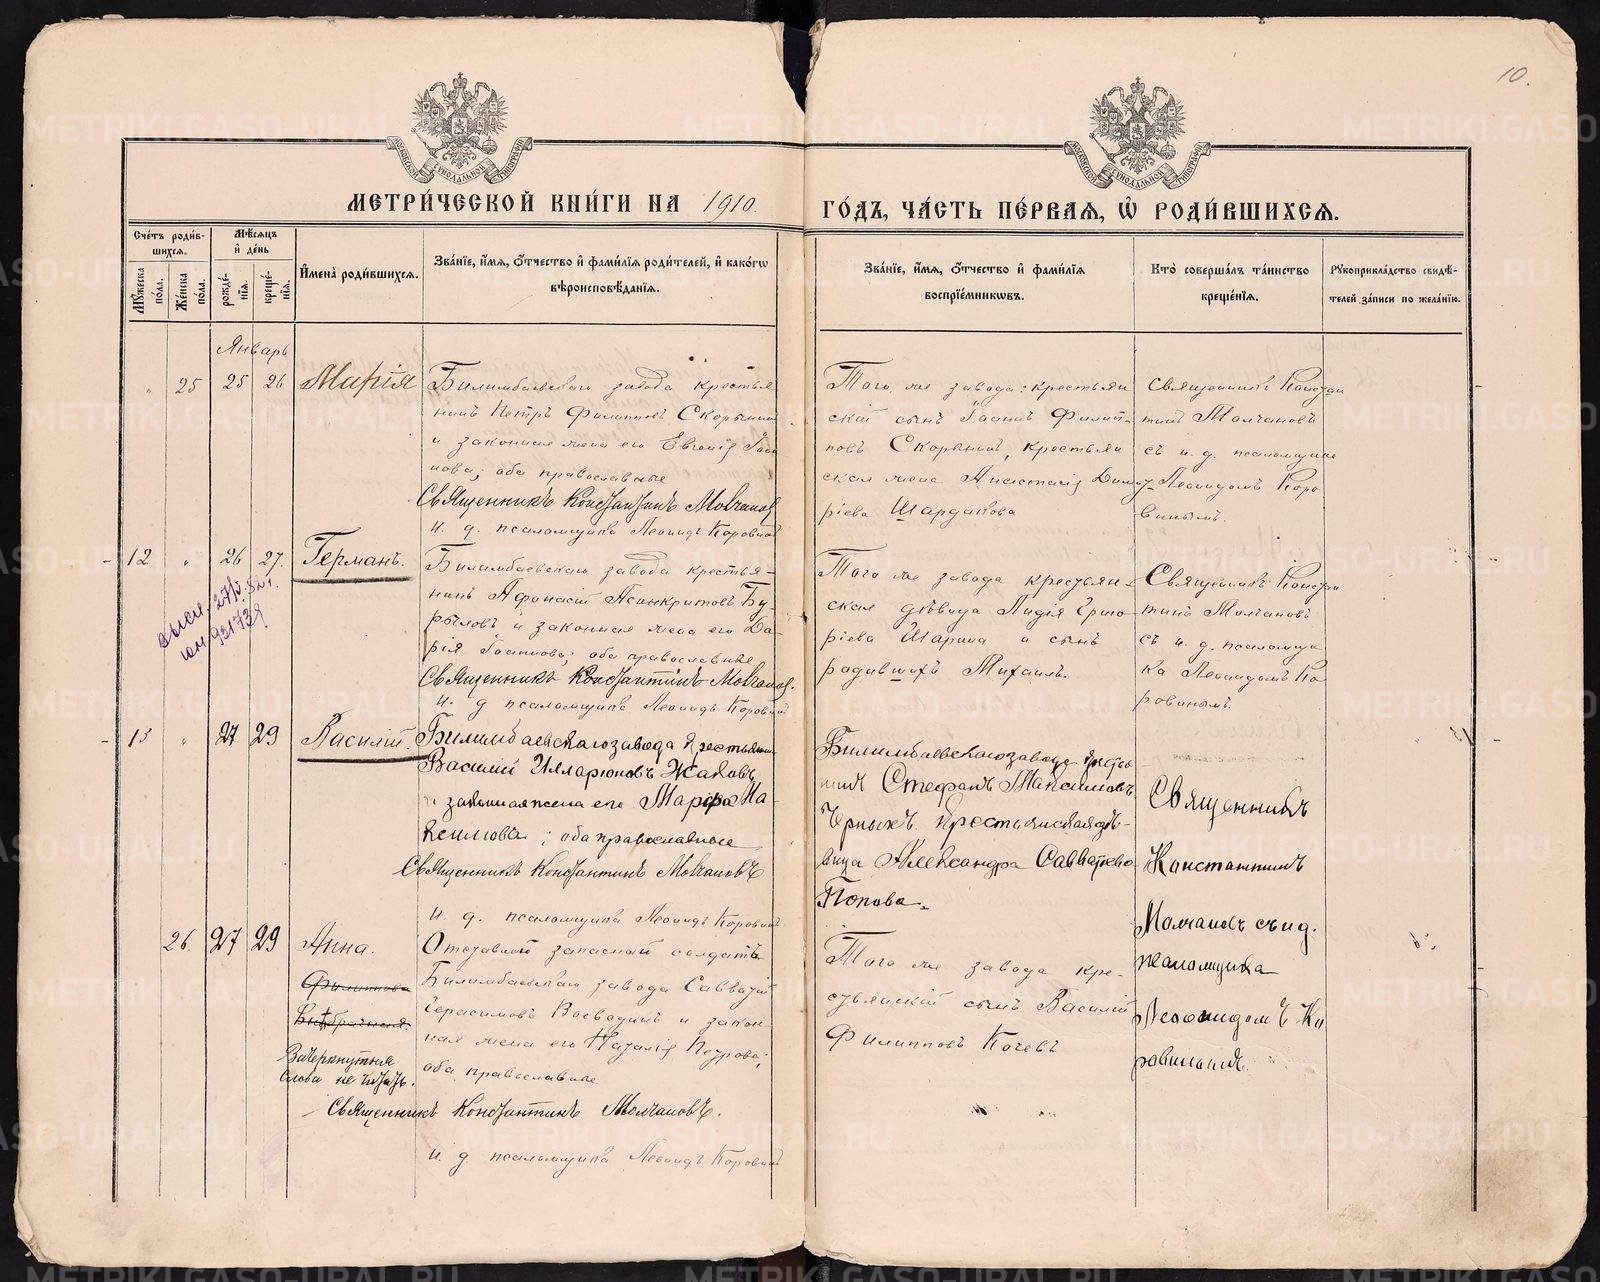 10.
МОСКОВСКОЙ СУНОДАЛЬНОЙ ТИПОГРАФІИ
МОСКОВСКОЙ СУНОДАЛЬНОЙ ТИПОГРАФІИ
МЕТРИ́ЧЕСКОЙ КНИ́ГИ НА 1910.
ГО́ДЪ, ЧА́СТЬ ПЕ́РВАѦ, Ѡ҆ РОДИ́ВШИХСѦ.
Сче́тъ роди́в-
шихсѧ.
Мꙋ́жеска по́ла.
Же́нска по́ла.
Мѣ́сѧцъ
и҆ де́нь
рожде́-
нїѧ.
креще́-
нїѧ.
И҆мена̀ роди́вшихсѧ.
Зва́нїе, и҆́мѧ, ѻ҆́тчество и҆ фами́лїѧ роди́телей, и҆ како́гѡ
вѣроисповѣ́данїѧ.
Зва́нїе, и҆́мѧ, ѻ҆́тчество и҆ фами́лїѧ
воспрїе́мникѡвъ.
Кто̀ соверша́лъ та́инство
креще́нїѧ.
Рꙋкоприкла́дство свидѣ́-
телей за́писи по жела́нїю.
Январь
" 25 25 26 Марія
Билимбаевскаго завода крестья
нинъ Петръ Филипповъ Скорынинъ
и законная жена его Евгенія Іоан
нова; оба православные
Священникъ Константинъ Молчановъ
и. д. псаломщика Леонидъ Коровинъ
Того же завода: крестьян
скій сынъ Іоаннъ Филип-
повъ Скорынинъ, крестьян
ская жена Анастасія Дими
ріева Шардакова
Священникъ Констан
тинъ Молчановъ
съ и. д. псаломщика
Леонидомъ Коро
винымъ.
12 " 26 27. Германъ.
Билимбаевскаго завода крестья-
нинъ Афанасій Асинкритовъ Бу-
рыловъ и законная жена его Да-
рія Іоаннова; оба православные
Священникъ Константинъ Молчановъ.
и. д псаломщика Леонидъ Коровинъ
Того же завода крестьян-
ская дѣвица Лидія Григо
ріева Шарина и сынъ
родившихъ Михаилъ.
Священникъ Констан
тинъ Молчановъ
съ и. д. псаломщи
ка Леонидомъ Ко
ровинымъ.
13 " 27 29 Василій
Билимбаевскаго завода крестьянинъ
Василій Илларіоновъ Жаковъ
и законная жена его Марфа Ма-
ксимова; оба православные
Священникъ Константинъ Молчановъ
и. д. псаломщика Леонидъ Коровинъ
Билимбаевскаго завода кресть
нинъ Стефанъ Максимовъ
Черныхъ. Крестьянская дѣ-
вица Александра Савватіева
Попова.
Священникъ
Константинъ
Молчановъ съ и д.
псаломщика
Леонидомъ Ко
ровинымъ.
26. 27 29 Анна.
Филиппова
Внѣбрачная.
Зачеркнутыя
слова не читать.
Отставной запасный солдатъ
Билимбаевскаго завода Савватій
Герасимовъ Воеводинъ и закон
ная жена его Наталія Петрова;
оба православные
Священникъ Константинъ Молчановъ.
и. д. псаломщика Леонидъ Коровинъ
Того же завода кре-
стьянскій сынъ Василій
Филипповъ Кочевъ